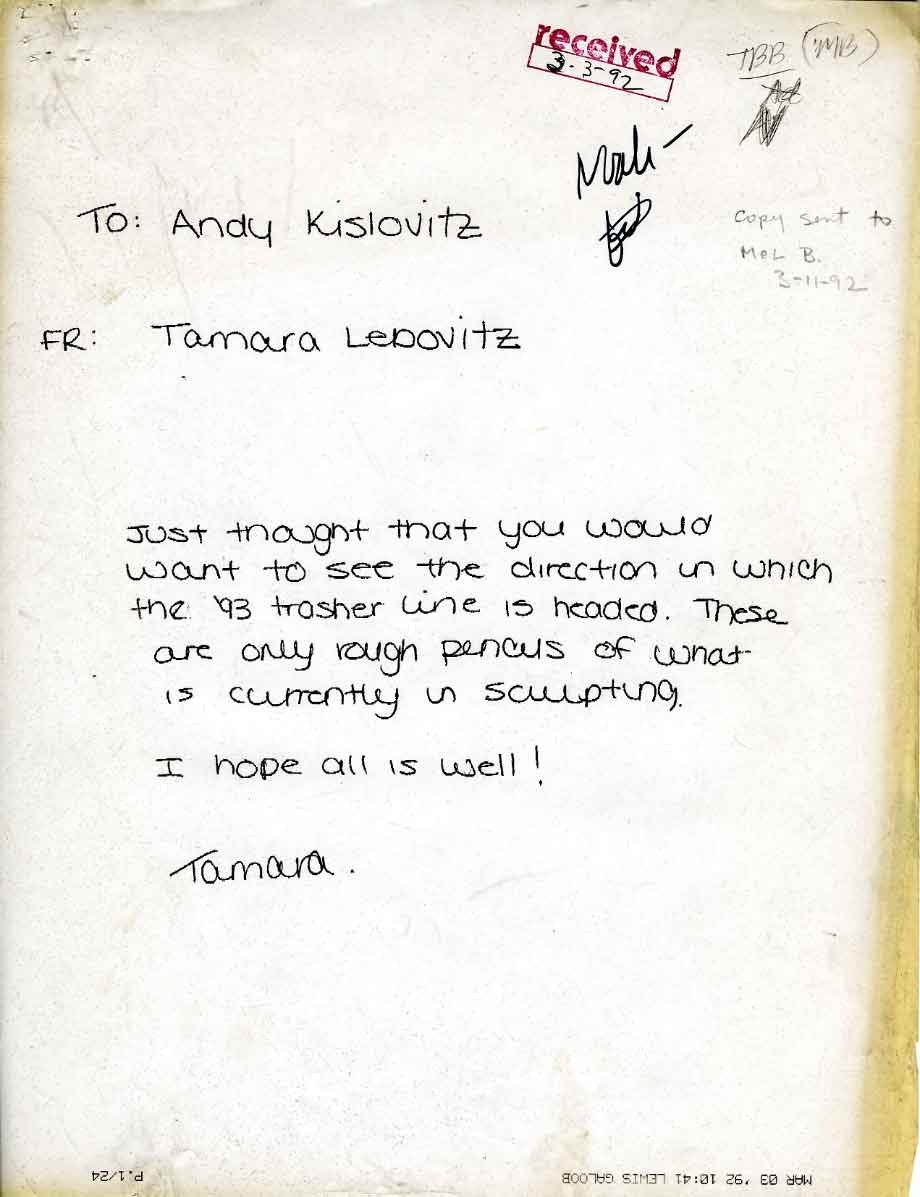 received
3-3-92
TBB (MB)
TO: Andy Kislovitz
Copy sent to
Mel B.
3-11-92
FR: Tamara Lebovitz
Just thought that you would
want to see the direction in which
the '93 trasher line is headed. These
are only rough pencils of what
is currently in sculpting.
I hope all is well!
Tamara.
P.1/24
MAR 03 '92 10:41 LEWIS GALOOB